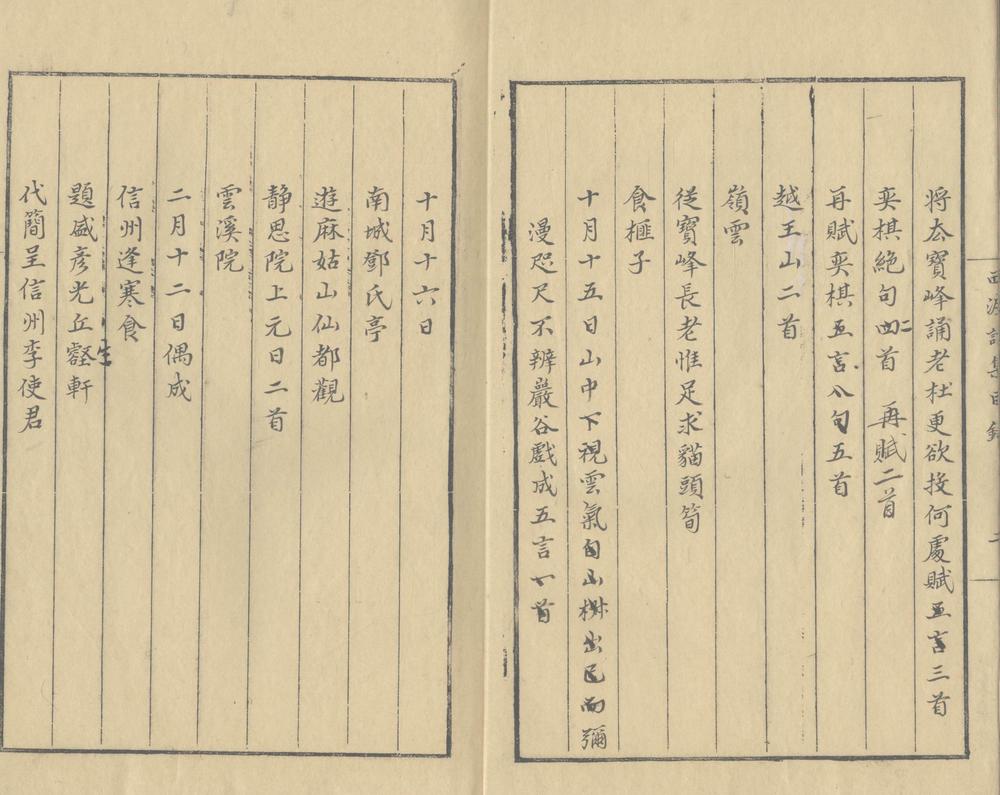 將去寶峰誦老杜更欲投何處賦五言三首
奕棋絕句二首　再賦二首
再賦奕棋五言八句五首
越王山二首
嶺雲
從寶峰長老惟足求貓頭筍
食榧子
十月十五日山中下視雲氣自山樹出已而彌
漫咫尺不辨巖谷戲成五言八首
十月十六日
南城鄧氏亭
遊麻姑山仙都觀
靜思院上元日二首
雲溪院
二月十二日偶成
信州逢寒食
題盛彥光丘壑軒
代簡呈信州李使君